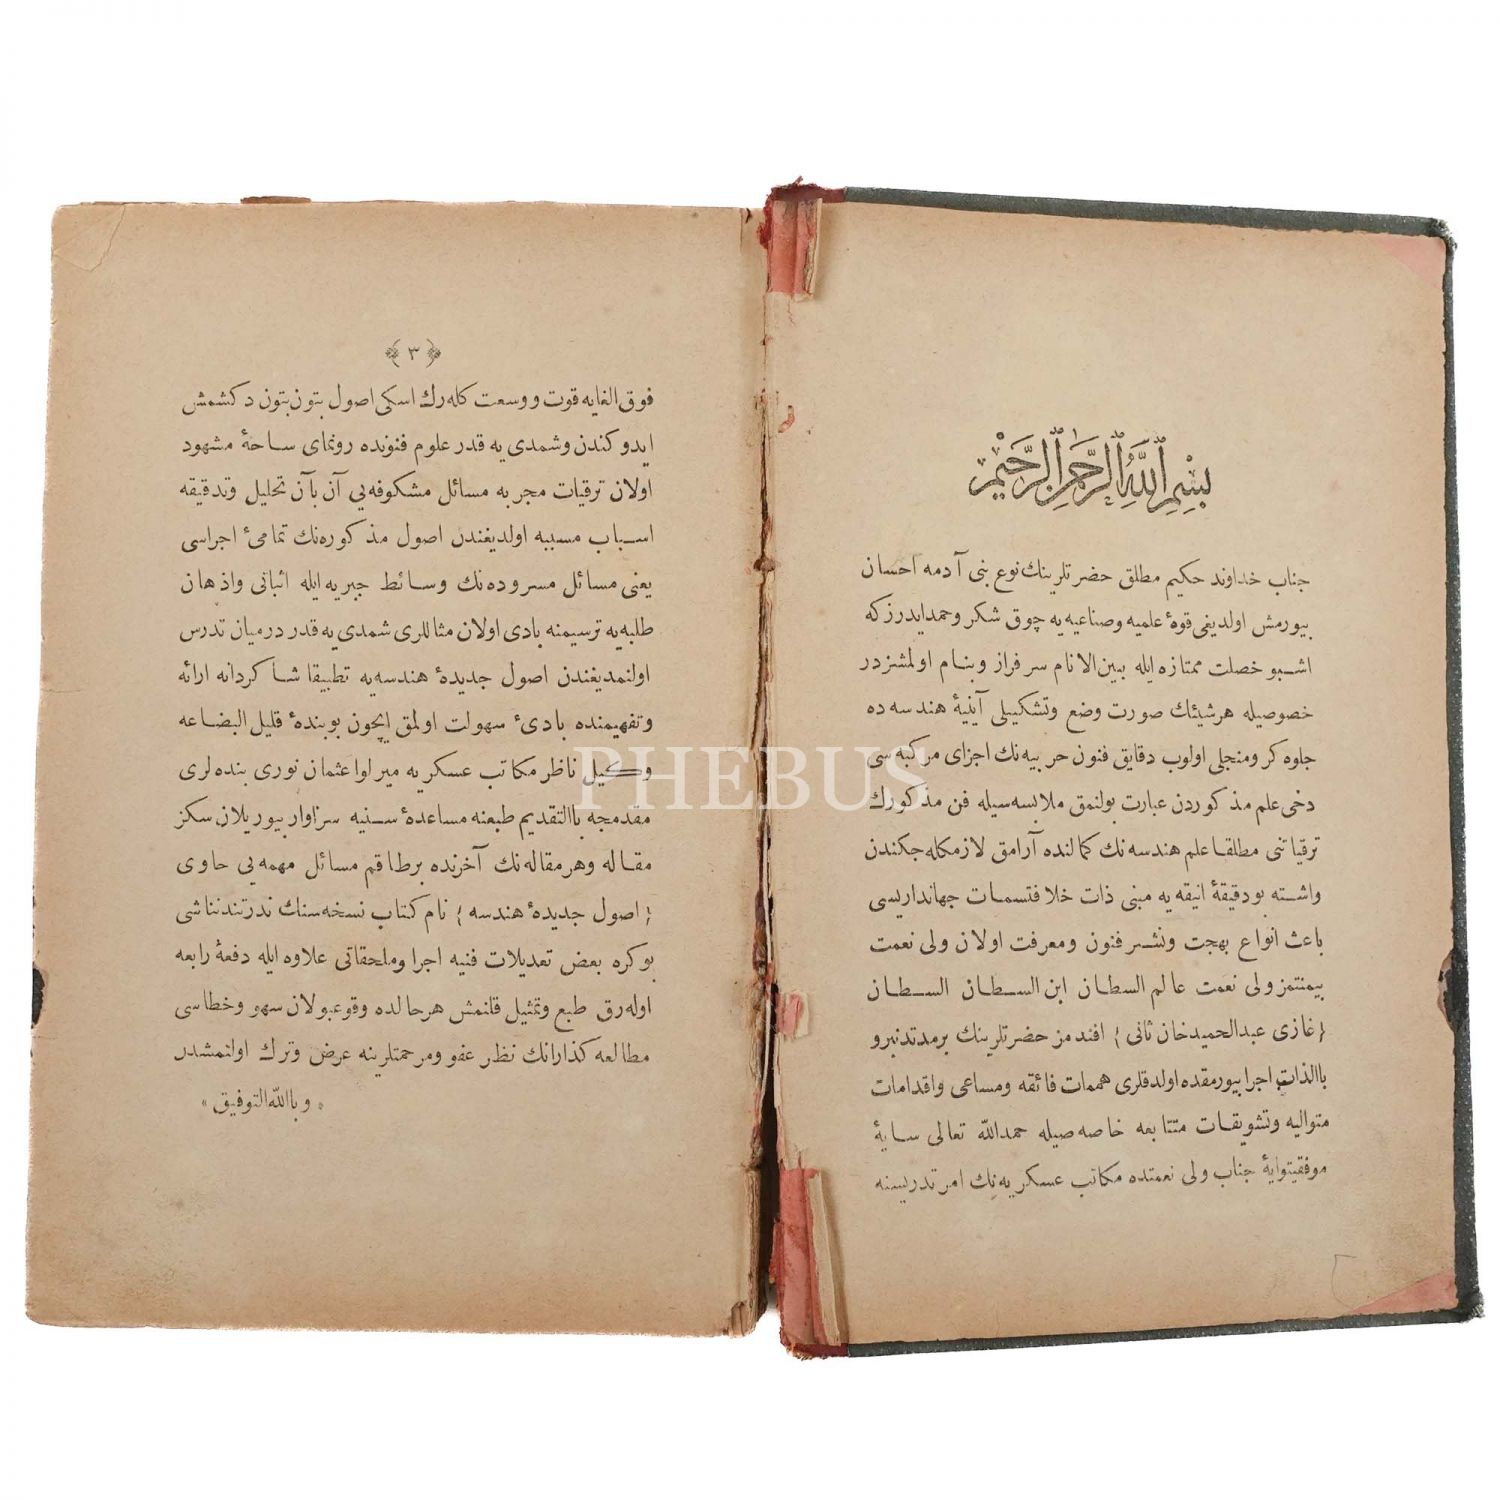 بسم الله الرحمن الرحيم
جناب خداوند حكيم مطلق حضرتلرينك نوع بنى آدمه احسان
بيورمش اولديغى قوهٔ علميه وصناعيه يه چوق شكر وحمد ايدرز كه
اشبو خصلت ممتازه ايله بين الانام سرفراز وبنام اولمشزدر
خصوصيله هر شيئك صورت وضع وتشكيلى آينهٔ هندسه ده
جلوه كر ومنجلى اولوب دقايق فنون حربيه نك اجزاى مركبه سى
دخى علم مذكوردن عبارت بولنمق ملابسه سيله فن مذكورك
ترقياتنى مطلقا علم هندسه نك كمالنده آرامق لازمكله جكندن
واشته بو دقيقهٔ انيقه يه مبنى ذات خلافتسمات جهانداريسى
باعث انواع بهجت ونشر فنون ومعرفت اولان ولى نعمت
بيمنتمز ولى نعمت عالم السطان ابن السطان السطان
﴿ غازى عبدالحميد خان ثانى ﴾ افندمز حضرتلرينك برمدتدنبرو
باالذات اجرا بيورمقده اولدقلرى هممات فائقه ومساعى واقدامات
متواليه وتشويقات متتابعه خاصه صيله حمدالله تعالى سايهٔ
موفقيتوايهٔ جناب ولى نعمتده مكاتب عسكريه نك امر تدريسنه
﴿ ٣ ﴾
فوق الغايه قوت ووسعت كله رك اسكى اصول بتون بتون دكشمش
ايدوكندن وشمدى يه قدر علوم فنونده رونماى ساحهٔ مشهود
اولان ترقيات مجربه مسائل مشكوفه يى آن بآن تحليل وتدقيقه
اسباب مسببه اولديغندن اصول مذكوره نك تمامىٔ اجراسى
يعنى مسائل مسروده نك وسائط جبريه ايله اثباتى واذهان
طلبه يه ترسيمنه بادى اولان مثاللرى شمدى يه قدر درميان تدرس
اولنمديغندن اصول جديدهٔ هندسه يه تطبيقا شاكردانه ارائه
وتفهيمنده بادىٔ سهولت اولمق ايچون بو بندهٔ قليل البضاعه
وكيل ناظر مكاتب عسكريه ميرلوا عثمان نورى بنده لرى
مقدمجه باالتقديم طبعنه مساعدهٔ سنيه سزاوار بيوريلان سكز
مقاله وهر مقاله نك آخرنده برطاقم مسائل مهمه يى حاوى
﴿ اصول جديدهٔ هندسه ﴾ نام كتاب نسخه سنك ندرتندنناشى
بوكره بعض تعديلات فنيه اجرا وملحقاتى علاوه ايله دفعهٔ رابعه
اوله رق طبع وتمثيل قلنمش هر حالده وقوعبولان سهو وخطاسى
مطالعه كذارانك نظر عفو ومرحمتلرينه عرض وترك اولنمشدر
« وباالله التوفيق »
PHEBUS